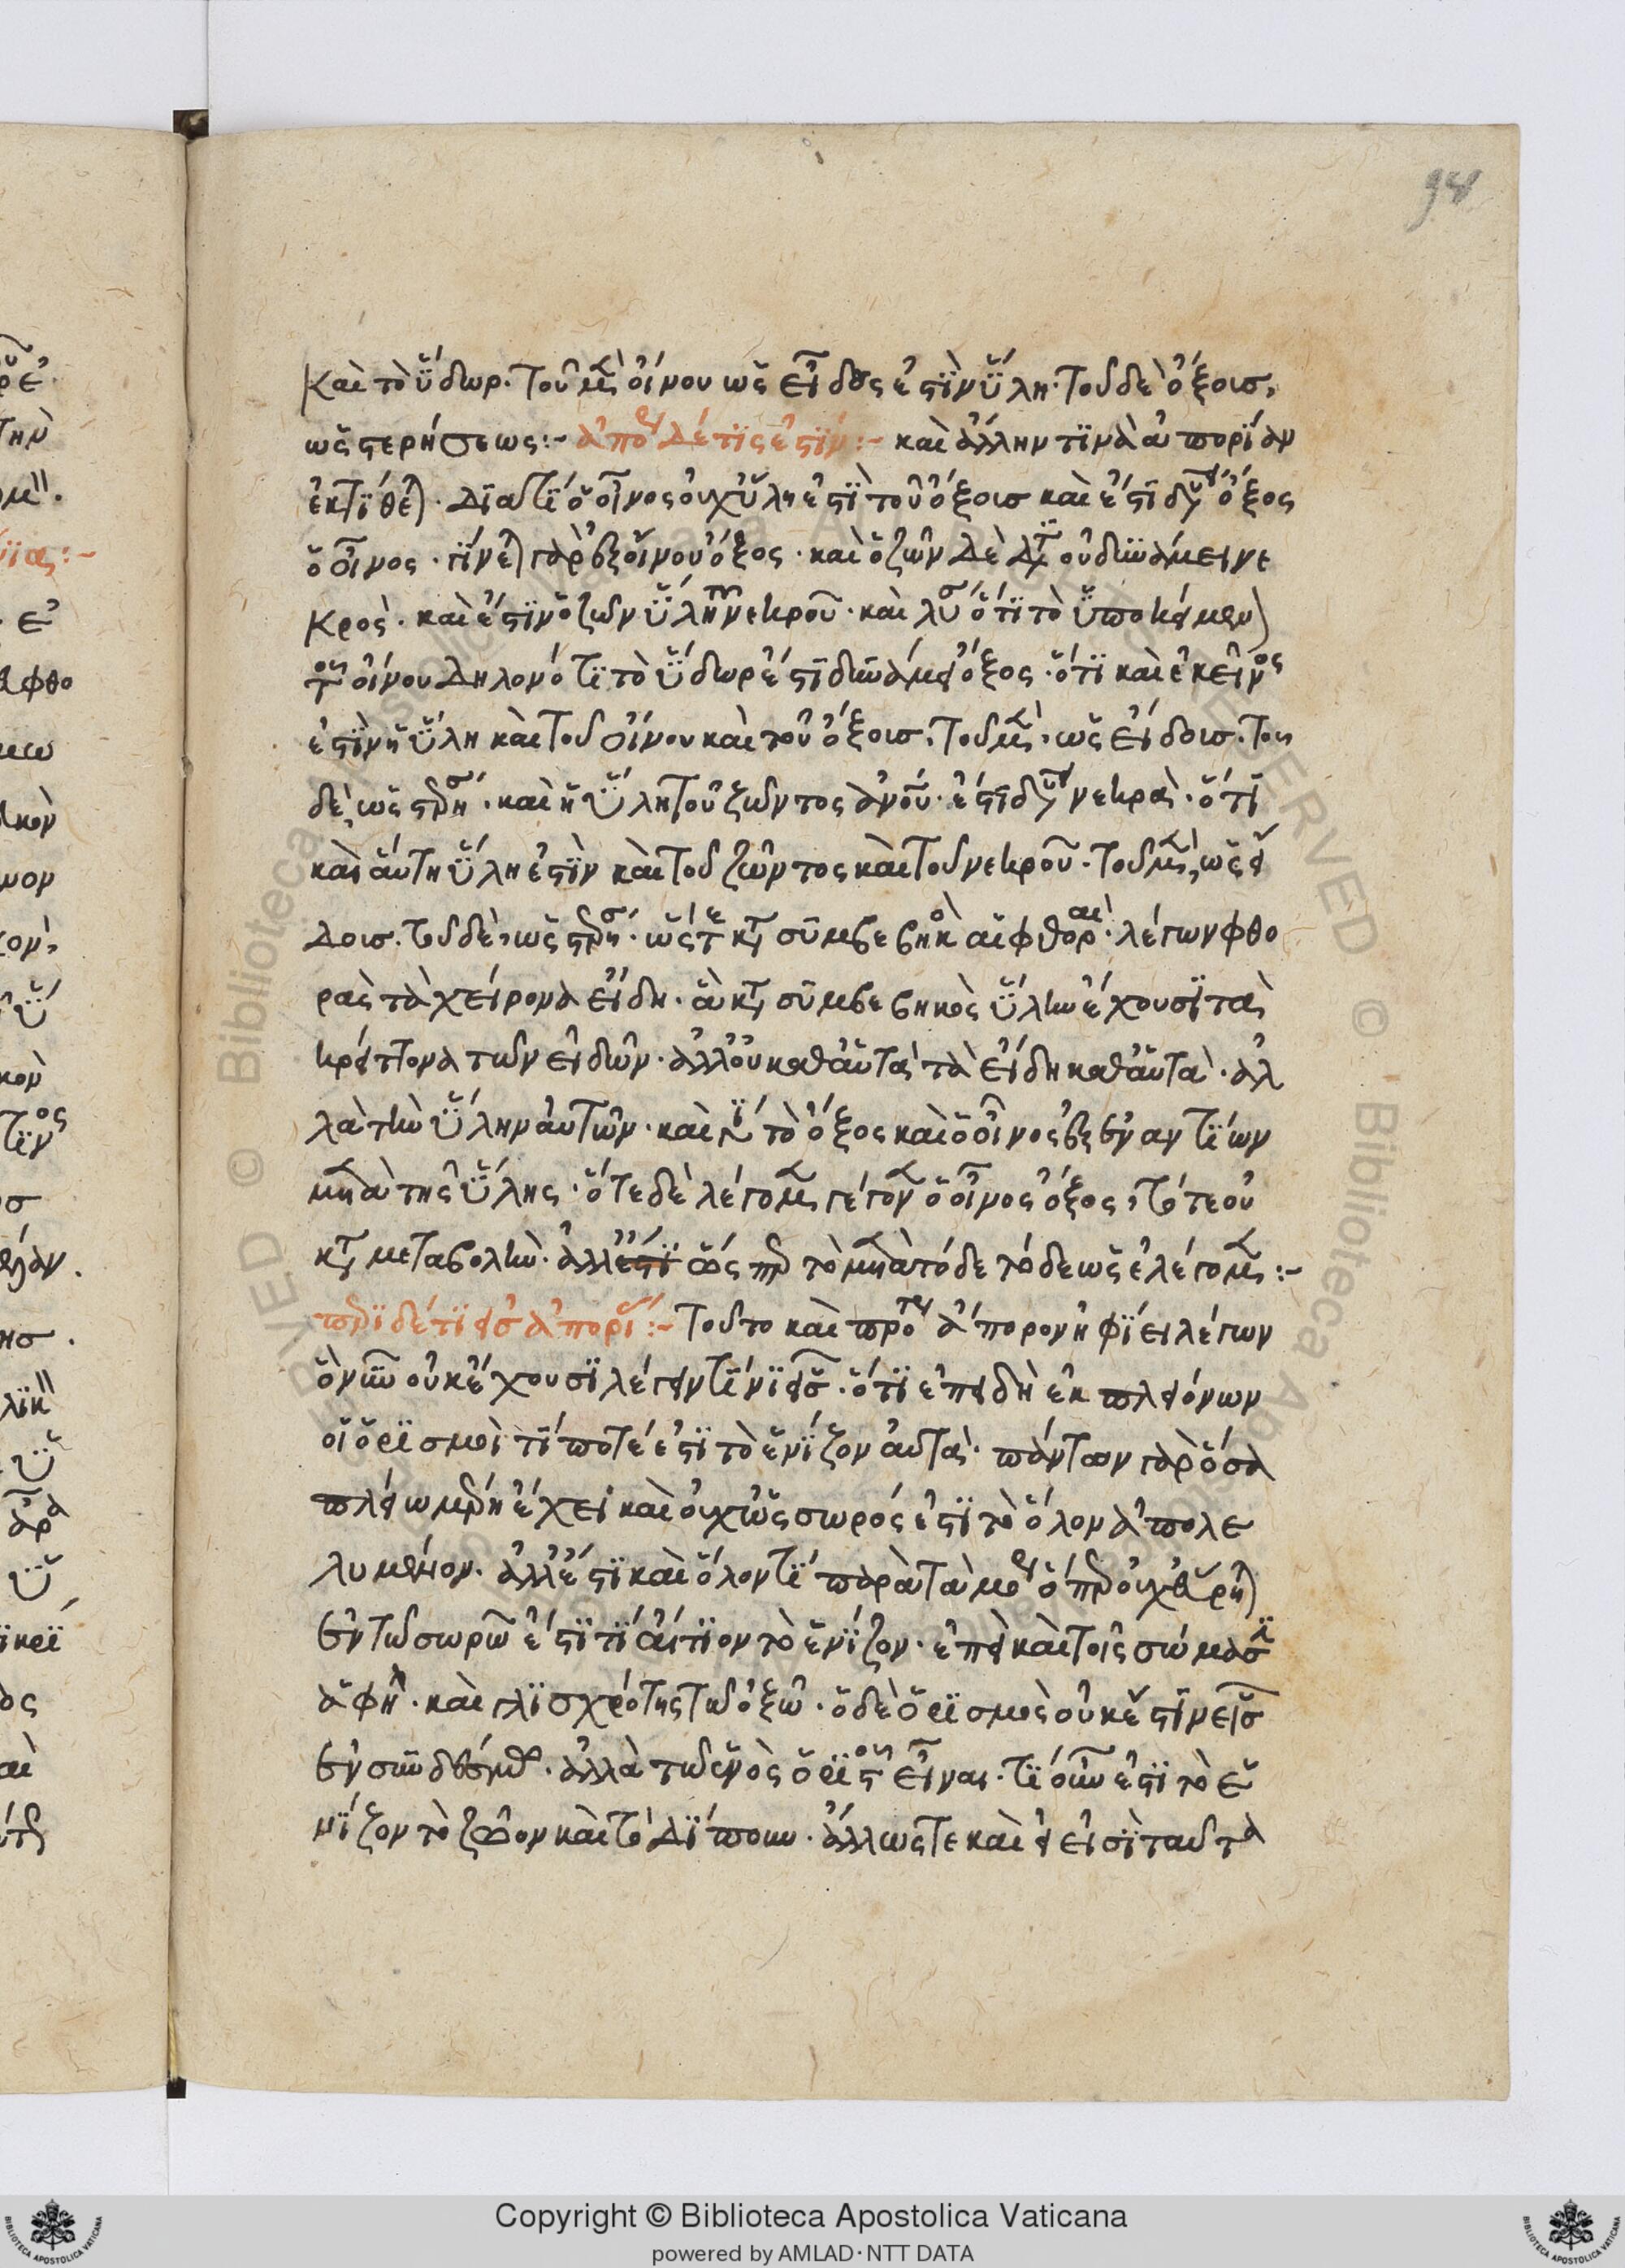 94
καὶ τὸ ὕδωρ. τοῦ μὲν οἴνου ὡς εἶδος ἐστὶν ὕλη. τοῦ δὲ ὄξους,
ὡς στερήσεως:- ἀπορία δέ τις ἐστίν:- καὶ ἄλλην τινὰ ἀπορίαν
ἐκτίθεται. διατί ὁ οἶνος οὐχ ὕλη ἐστὶ τοῦ ὄξους καὶ ἔστι δυνάμει ὄξος
ὁ οἶνος. γίνεται γὰρ ἐξ οἴνου ὄξος. καὶ ὁ ζῶν δὲ διατί οὐ δυνάμει νε
κρός. καὶ ἔστιν ὁ ζῶν ὕλη τοῦ νεκροῦ. καὶ λύσις ὅτι τὸ ὑποκείμενον
τοῦ οἴνου δηλονότι τὸ ὕδωρ ἐστὶ δυνάμει ὄξος. ὅτι καὶ ἐκείνος
ἐστὶν ἡ ὕλη καὶ τοῦ οἴνου καὶ τοῦ ὄξους. τοῦ μὲν, ὡς εἴδους. τοῦ
δὲ, ὡς στερήσεως. καὶ ἡ ὕλη τοῦ ζῶντος ἀνθρώπου. ἐστὶ δυνάμει νεκρά. ὅτι
καὶ αὕτη ὕλη ἐστὶν καὶ τοῦ ζῶντος καὶ τοῦ νεκροῦ. τοῦ μὲν, ὡς εἴ
δους. τοῦ δὲ, ὡς στερήσεως. ὥστε κατὰ συμβεβηκὸς αἱ φθοραί. λέγων φθο
ρὰς τὰ χείρονα εἴδη. ἃ κατὰ συμβεβηκὸς ὕλην ἔχουσι τὰ
κρείττονα τῶν εἰδῶν. ἀλλ' οὐ καθ' αὑτὰ τὰ εἴδη καθ' αὑτά. ἀλ
λὰ τὴν ὕλην αὐτῶν. καὶ γίνεται τὸ ὄξος καὶ ὁ οἶνος ἐξ ἐναντίων
μετὰ τῆς ὕλης. ὅτε δὲ λέγομεν γέγονεν ὁ οἶνος ὄξος, τότε οὐ
κατὰ μεταβολήν. ἀλλ' ὥσπερ τὸ μετὰ τόδε τόδε ὡς ἐλέγομεν:-
περὶ δέ τῆς εἰρημένης ἀπορίας:- τοῦτο καὶ πρότερον ἄπορον ἤφιει λέγων
ὃν νῦν οὐκ ἔχουσι λέγειν τίνι εἷς. ὅτι ἐπειδὴ ἐκ πλειόνων
οἱ ὁρισμοὶ τί ποτέ ἐστι τὸ ἑνίζον αὐτά. πάντων γὰρ ὅσα
πλείω μέρη ἔχει καὶ οὐχ ὡς σωρός ἐστι τὸ ὅλον ἀπολε
λυμένον. ἀλλ' ἔστι καὶ ὅλον τί παρὰ τὰ μόρια ὅπερ οὐχ εὕρηται
ἐν τῷ σωρῷ ἐστί τι αἴτιον τὸ ἑνίζον. ἐπεὶ καὶ τοῖς σώμασι
ἁφή. καὶ γλισχρότης τῷ ὀξῷ. ὁ δὲ ὁρισμὸς οὐκ ἔστιν εἷς
ἐν συνδέσμῳ. ἀλλὰ τῷ ἑνὸς ὁριστὸς εἶναι. τί οὖν ἐστι τὸ ἑ
νίζον τὸ ζῶον καὶ τὸ δίπουν. ἄλλως τε καὶ εἰ εἰσὶ ταῦτα
Copyright © Biblioteca Apostolica Vaticana
powered by AMLAD·NTT DATA